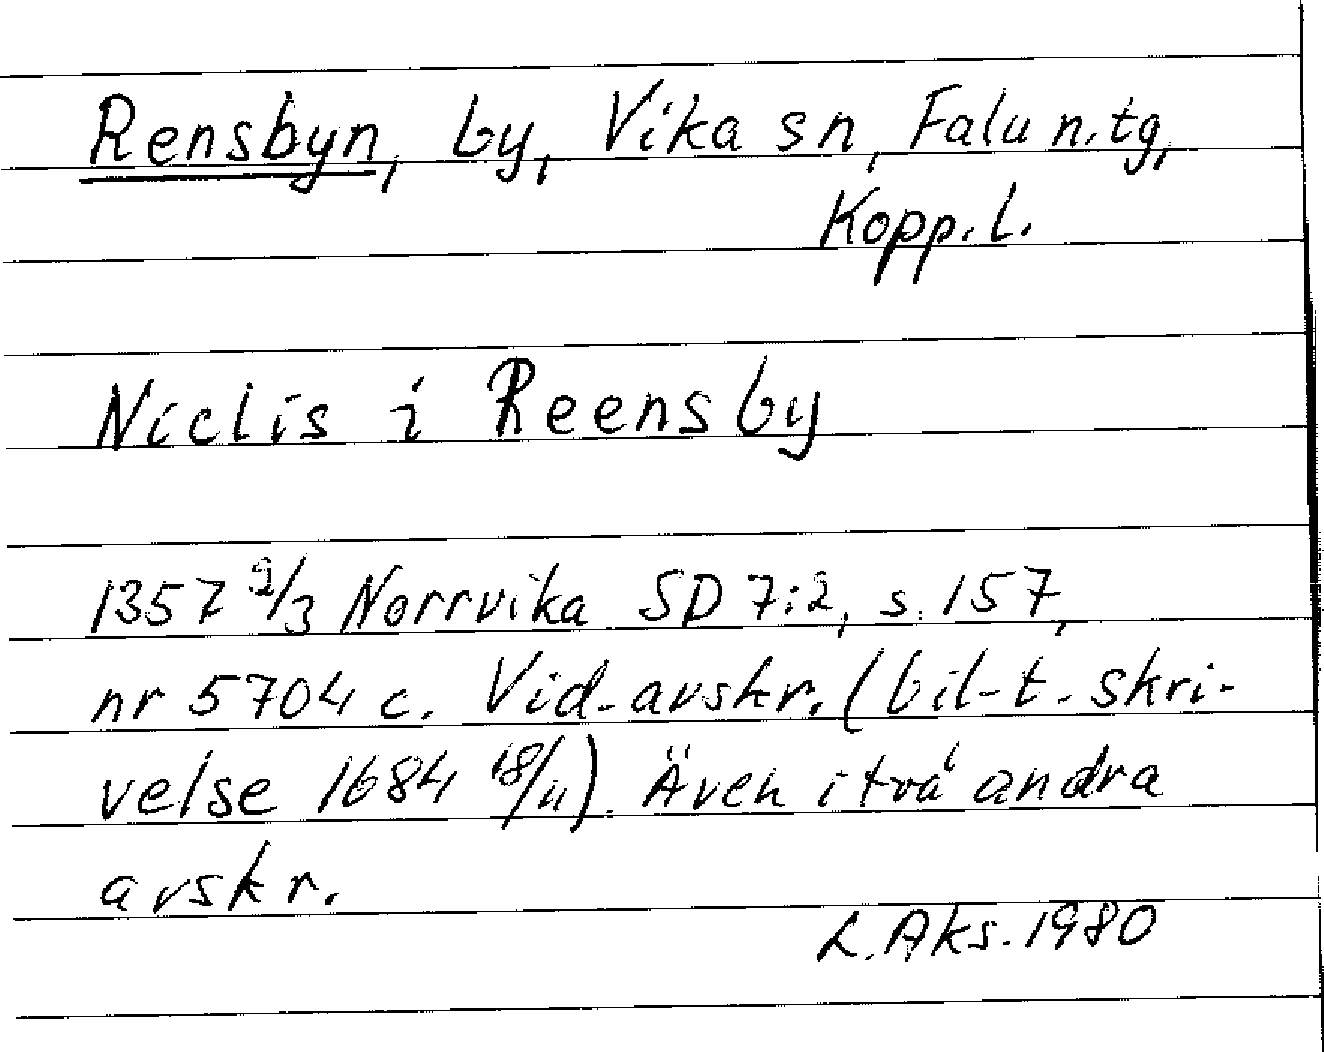 Rensbyn, by, Vika sn, Falu n. tg,
Kopp. l.
Niclis i Reensby
1357 2/3 Norrvika SD 7:2, s. 157,
nr 5704 c. Vid. avskr. (bil. t. skri-
velse 1684 18/11). Även i två andra
avskr.
L. Aks. 1980